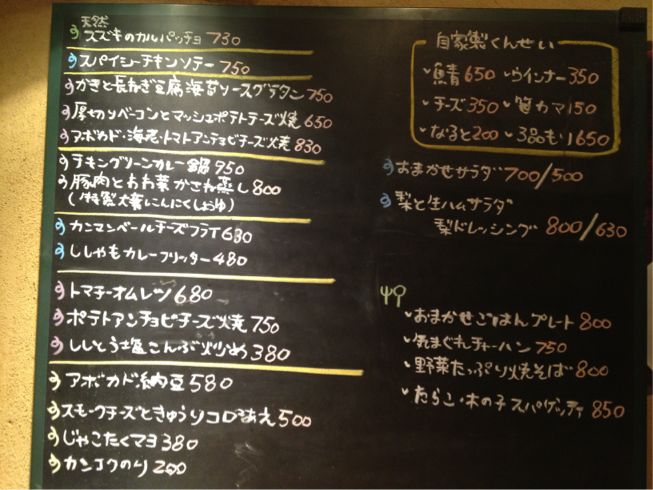 天然
スズキのカルパッチョ 730
スパイシーチキンソテー 750
かきと長ねぎ豆腐海苔ソースグラタン 750
厚切りベーコンとマッシュポテトチーズ焼 650
アボカド・海老・トマトアンチョビチーズ焼 830
チキングリーンカレー鍋 950
豚肉とお菜かさね蒸し 800
(特製大葉にんにくしょうゆ)
カマンベールチーズフライ 630
ししゃもカレーフリッター 480
トマチーオムレツ 680
ポテトアンチョビチーズ焼 750
ししとう塩こんぶ炒め 380
アボカド納豆 580
スモークチーズときゅうりコロあえ 500
じゃこたくマヨ 380
カンコクのり 200
自家製くんせい
鯖 650 ・ウインナー 350
・チーズ 350 ・笹カマ 150
・なると 200 ・3品もり 650
おまかせサラダ 700/500
梨と生ハムサラダ
梨ドレッシング 800/630
・おまかせごはんプレート 800
・気まぐれチャーハン 750
・野菜たっぷり焼そば 800
・たらこ・木の子スパゲッティ 850